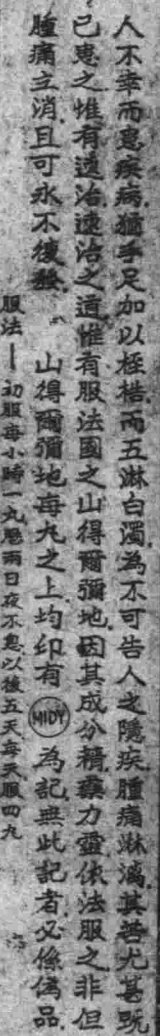 人不幸而患疾病猶手足加以桎梏而五淋白濁為不可告人之隱疾腫痛淋漓其苦尤甚既
已患之惟有速治速治之道惟有服法國之山得爾彌地因其成分精藥力靈依法服之非但
腫痛立消且可永不復發
山得爾彌地每丸之上均印有MIDY為記無此記者必係偽品
服法—初服每小時一丸歷兩日夜不息以後五天每天服四丸